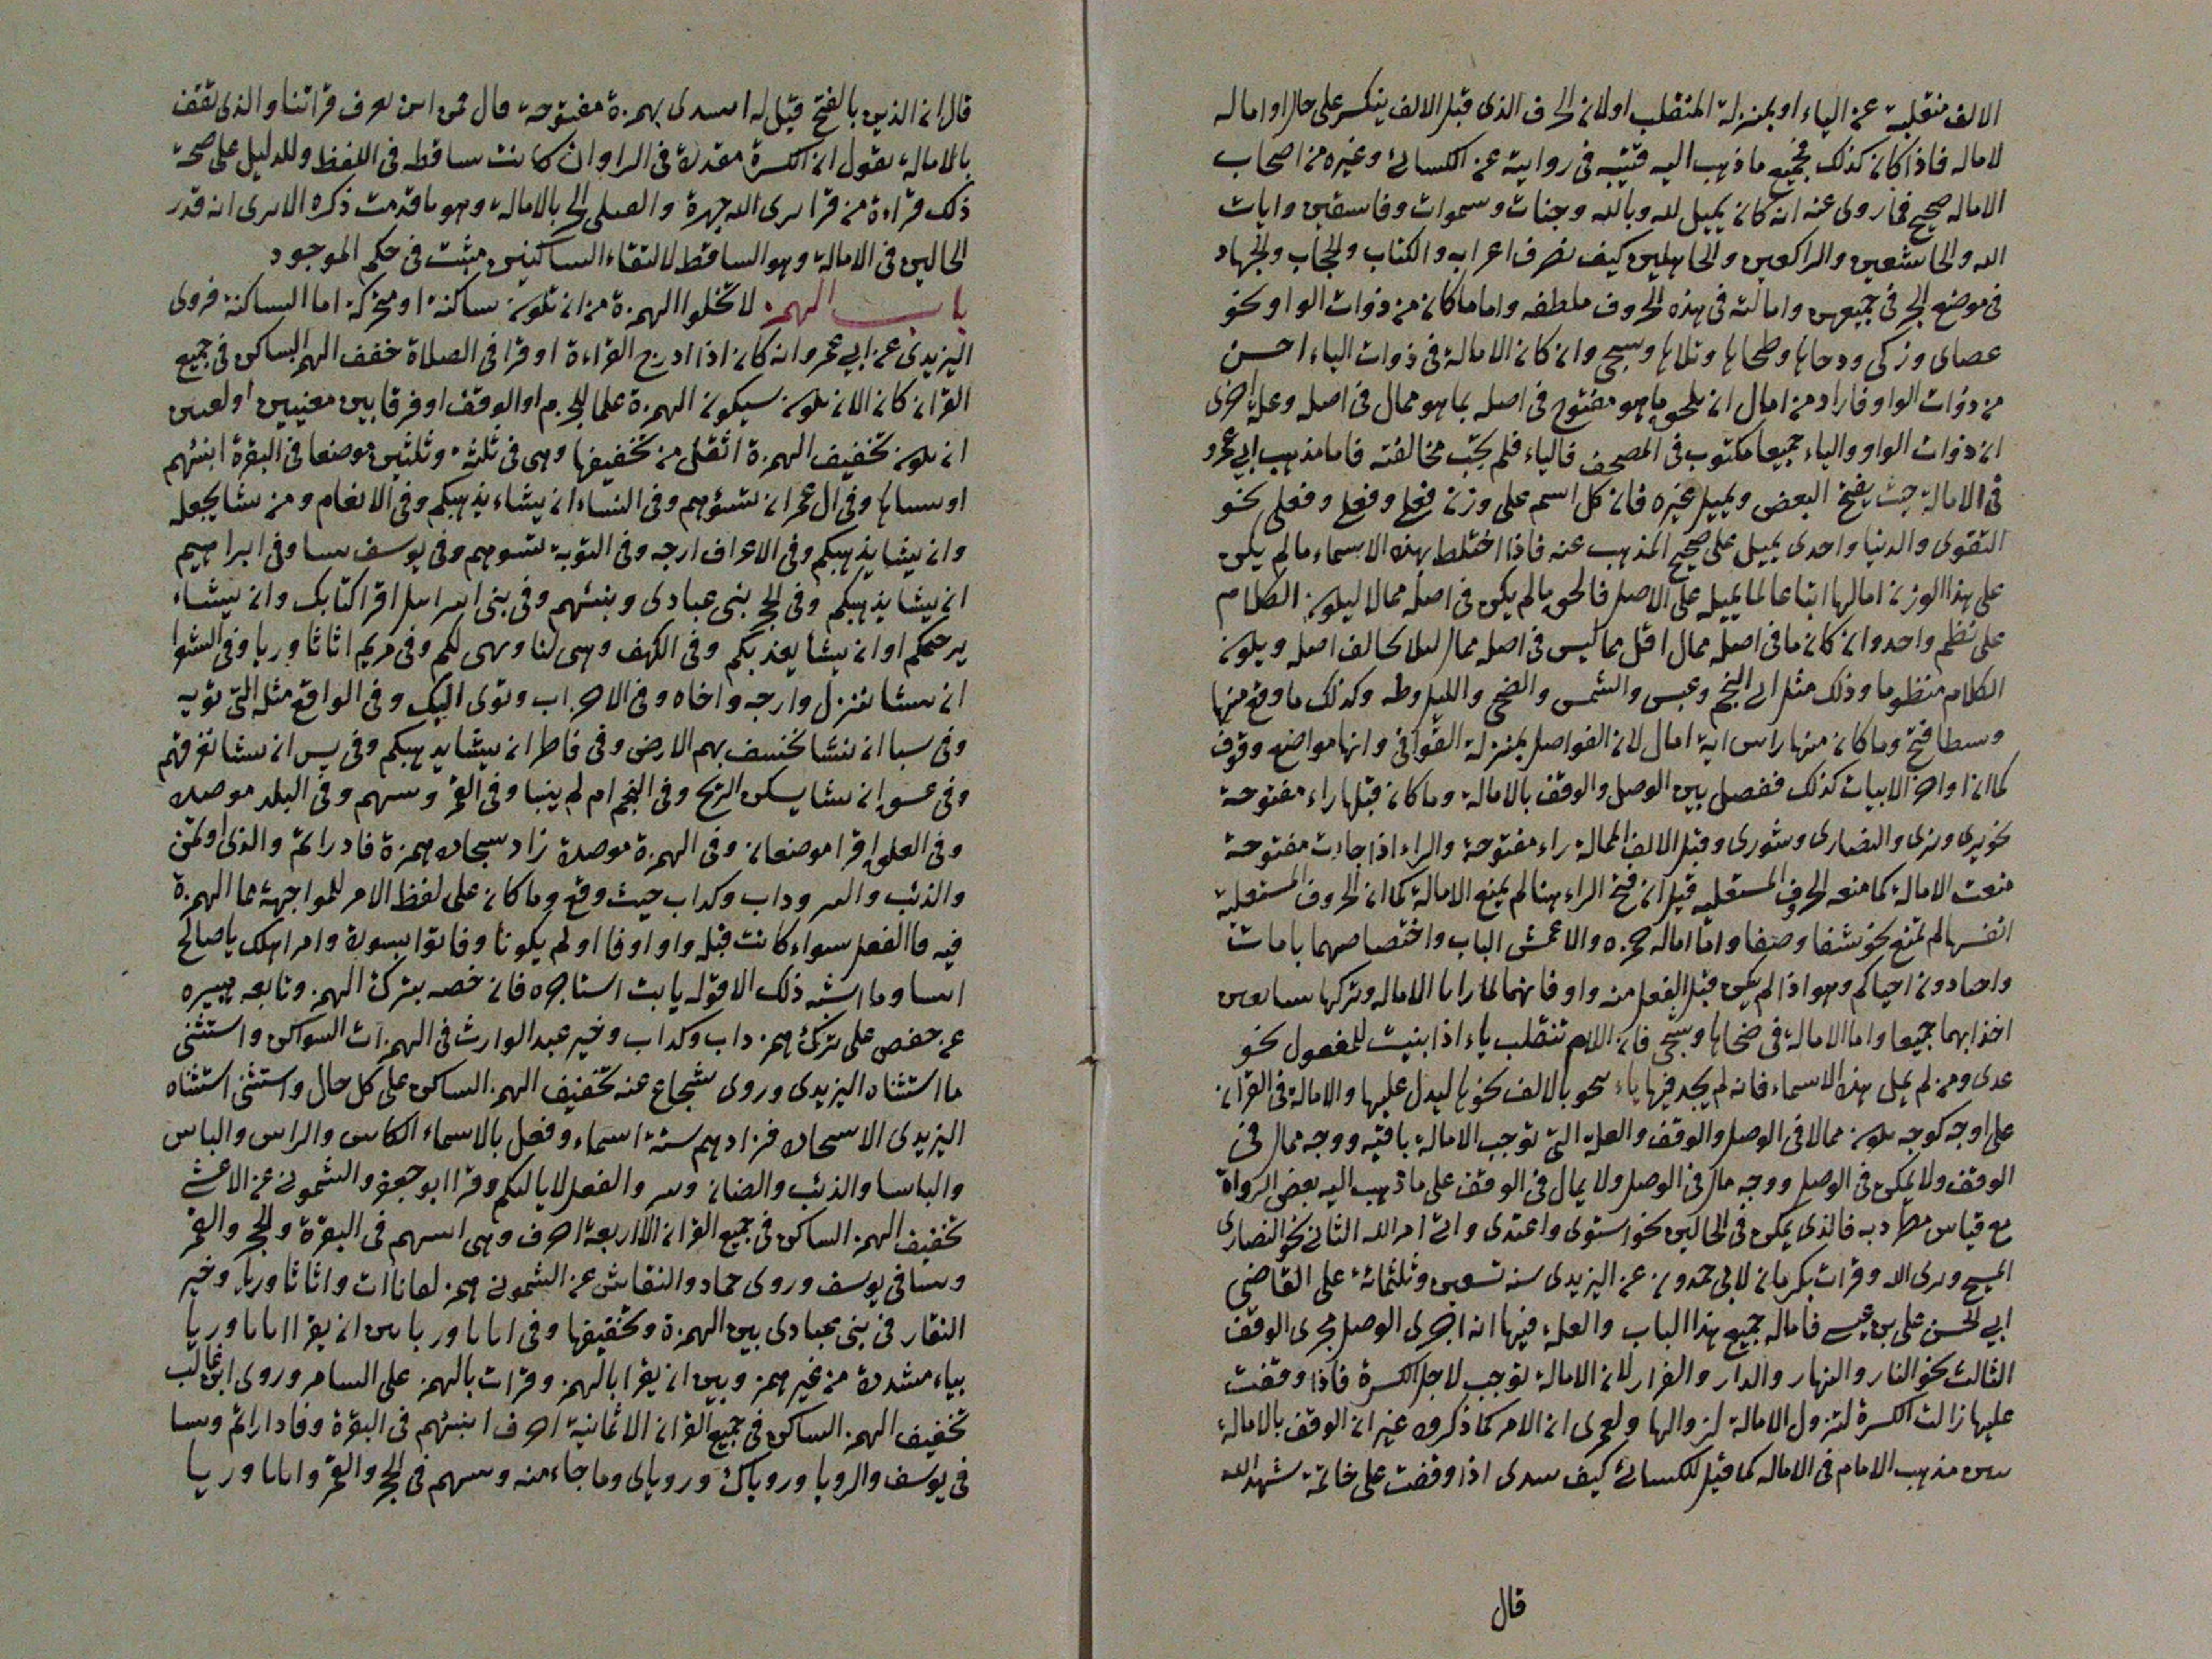 الالف منقلبة عن الياء او بمنزلة المنقلب اولان الحرف الذى قبل الالف ينكسر على حال او اماله
لاماله فاذا كان كذلك فجميع ما ذهب اليه قتيبه فى رواية عن الكسائى وغيره من اصحاب
الاماله صحيح فما روى عنه انه كان يميل لله وبالله وجنات وسموات وفاسقين وايات
الله والخاشعين والراكعين والجاهلين كيف تصرف اعرابه والكتاب والحجاب والجهاد
فى موضع الجر فى جميعهن وامالته فى هذه الحروف ملطفه واما ما كان من ذوات الواو نحو
عصاى وزكى ودحاها وطحاها وتلاها وسجى وان كان الامالة فى ذوات الياء احسن
من ذوات الواو فاراد من امال ان يلحق ما هو مفتوح فى اصله بما هو ممال فى اصله وعلة اخرى
ان ذوات الواو والياء جميعا مكتوب فى المصحف فالياء فلم يجب مخالفته فاما مذهب ابى عمرو
فى الامالة حيث يفتح البعض ويميل غيره فان كل اسم على وزن فعلى وفعلى وفعلى نحو
التقوى والدنيا واحدى يميل على صحيح المذهب عنه فاذا اختلط بهذه الاسماء ما لم يكن
على هذا الوزن امالها اتباعا لما يميله على الاصل فالحق ما لم يكن فى اصله ممالا ليكون الكلام
على نظم واحد وان كان ما فى اصله ممال اقل مما ليس فى اصله ممال لئلا يخالف اصله ويكون
الكلام منظوما وذلك مثل الى النجم وعبس والشمس والضحى والليل وطه وكذلك ما وقع منها
وسطا فتح وما كان منها راس اية امال لان الفواصل بمنزلة القوافى وانها مواضع وقوف
كما ان اواخر الابيات كذلك ففصل بين الوصل والوقف بالامالة وما كان قبلها راء مفتوحة
نحو يرى ونرى والنصارى وشورى وقبل الالف الممالة راء مفتوحة والراء اذا جاءت مفتوحة
منعت الامالة كما منعه الحروف المستعليه قيل ان فتح الراء هنا لم يمنع الامالة كما ان الحروف المستعلية
انفسها لم تمنع نحو شفا وصفا واما امالة حمزه والاعمش الباب واختصاصهما بامات
واحيا دون احياكم وهو اذا لم يكن قبل الفعل منه واو فانهما لما رايا الاماله وتركها سايغين
اخذا بهما جميعا واما الامالة فى ضحاها وسجى فان اللام تنقلب ياء اذا بنيت للمفعول نحو
عدى ومن لم يمل هذه الاسماء فانه لم يجد فيها ياء ينحو بالالف نحوها ليدل عليها والامالة فى القران
على اوجه كوجه يكون ممالا فى الوصل والوقف والعلة التى توجب الامالة باقيه ووجه ممال فى
الوقف ولا يمكن فى الوصل ووجه مال فى الوصل ولا يمال فى الوقف على ما ذهب اليه بعض الرواة
مع قياس مطرد به فالذى يمكن فى الحالين نحو استوى واعتدى واتى امر الله الثانى نحو النصارى
المسيح ويرى الله وقرات بكرمان لابى حمدون عن اليزيدى سنه تسعين وثلثمائة على القاضى
ابى الحسن على بن عيسى فاماله جميع هذا الباب والعلة فيها انه اجرى الوصل مجرى الوقف
الثالث نحو النار والنهار والدار والقرار لان الامالة توجب لاجل الكسرة فاذا وقفت
عليها زالت الكسرة لتزول الامالة لزوالها ولعمرى ان الامر كما ذكروه غير ان الوقف بالامالة
مذهب الامام فى الاماله كما قيل للكسائى كيف اذا وقفت على خاتمة شهد الله
قال
قال ان الذين بالفتح قيل له بهمزة مفتوحة قال فمن اين تعرف قراتنا والذى تقف
بالامالة يقول ان الكسرة مقدرة فى الراء وان كانت ساقطه فى اللفظ والدليل على صحة
ذلك قراءة من قرا يرى الله جهرة والقتلى الحر بالامالة وهو ما قدمت ذكره الا يرى انه قدر
الحالين فى الامالة وهو الساقط لالتقاء الساكنين مثبت فى حكم الموجود
باب الهمز لا تخلوا الهمزة من ان تكون ساكنة او متحركة اما الساكنة فروى
اليزيدى عن ابى عمرو انه كان اذا ادرج القراءة او قرا فى الصلاة خفف الهمز الساكن فى جميع
القران كان الا ان يكون سكون الهمزة علما للجزم او الوقف او فرقا بين معنيين او لغتين
ان يكون تخفيف الهمزة اثقل من تخفيفها وهى فى ثلثة وثلثين موضعا فى البقرة انبئهم
او ننساها وفى ال عمران تسؤهم وفى النساء ان يشاء يذهبكم وفى الانعام ومن يشا يجعله
وان يشا يذهبكم وفى الاعراف ارجه وفى التوبة تسوهم وفى يوسف نبينا وفى ابراهيم
ان يشا يذهبكم وفى الحجر نبى عبادى ونبئهم وفى بنى اسرايل اقرا كتابك وان يشاء
يرحمكم او ان يشا يعذبكم وفى الكهف وهيى لنا ويهيى لكم وفى مريم اثاثا وريا وفى الشعرا
ان نشا ننزل وارجه واخاه وفى الاحزاب وتوى اليك وفى الواقع مثله التى توية
وفى سبا ان نشا نخسف بهم الارض وفى فاطر ان يشا يذهبكم وفى يس ان نشا نغرقهم
وفى عسق ان يشا يسكن الريح وفى النجم ام لم ينبا وفى القمر ونبئهم وفى البلد موصدة
وفى العلق اقرا موضعان وفى الهمزة موصدة زاد سجادة همزة فادراتم والذى اوتمن
والذئب والبير وداب وكداب حيث وقع وما كان على لفظ الامر للمواجهة مما الهمزة
فيه فا الفعل سواء كانت قبله واو او فا او لم يكونا وفاتوا بسورة وامر اهلك يا صالح
ايتنا وما اشبه ذلك الا قوله يا ابت استاجره فانه خصه بترك الهمز وتابعه هبيره
عن حفص على ترك همز داب وكداب وخير عبد الوارث فى الهمزات السواكن واستثنى
ما استثناه اليزيدى وروى شجاع عنه تخفيف الهمز الساكن على كل حال واستثنى استثناه
اليزيدى الا سجادة فزادهم ستة اسماء وفعل بالاسماء الكاس والراس والباس
والباسا والذئب والضان وبير والفعل لا يالتكم وقرا ابو جعفر والشمونى عن الاعشى
تخفيف الهمز الساكن فى جميع القران الا اربعة احرف وهى انبئهم فى البقرة والحجر والقمر
ونبينا فى يوسف وروى حماد والنقاش عن الشمونى همز لقاناات واثاثا وريا وخير
النقار فى نبى عبادى بين الهمزة وتخفيفها وفى اثاثا وريا بين ان يقرا اثاثا وريا
بياء مشددة من غير همز وبين ان يقرا بالهمز وقرات بالهمز على السامر وروى ابن غالب
تخفيف الهمز الساكن فى جميع القران الا ثمانية احرف انبئهم فى البقرة وفادارأتم ونبينا
فى يوسف والرويا ورؤياك ورؤياى وما جاء منه ونبئهم فى الحجر والقمر واثاثا وريا